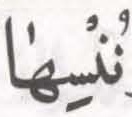 نُنْسِهَا